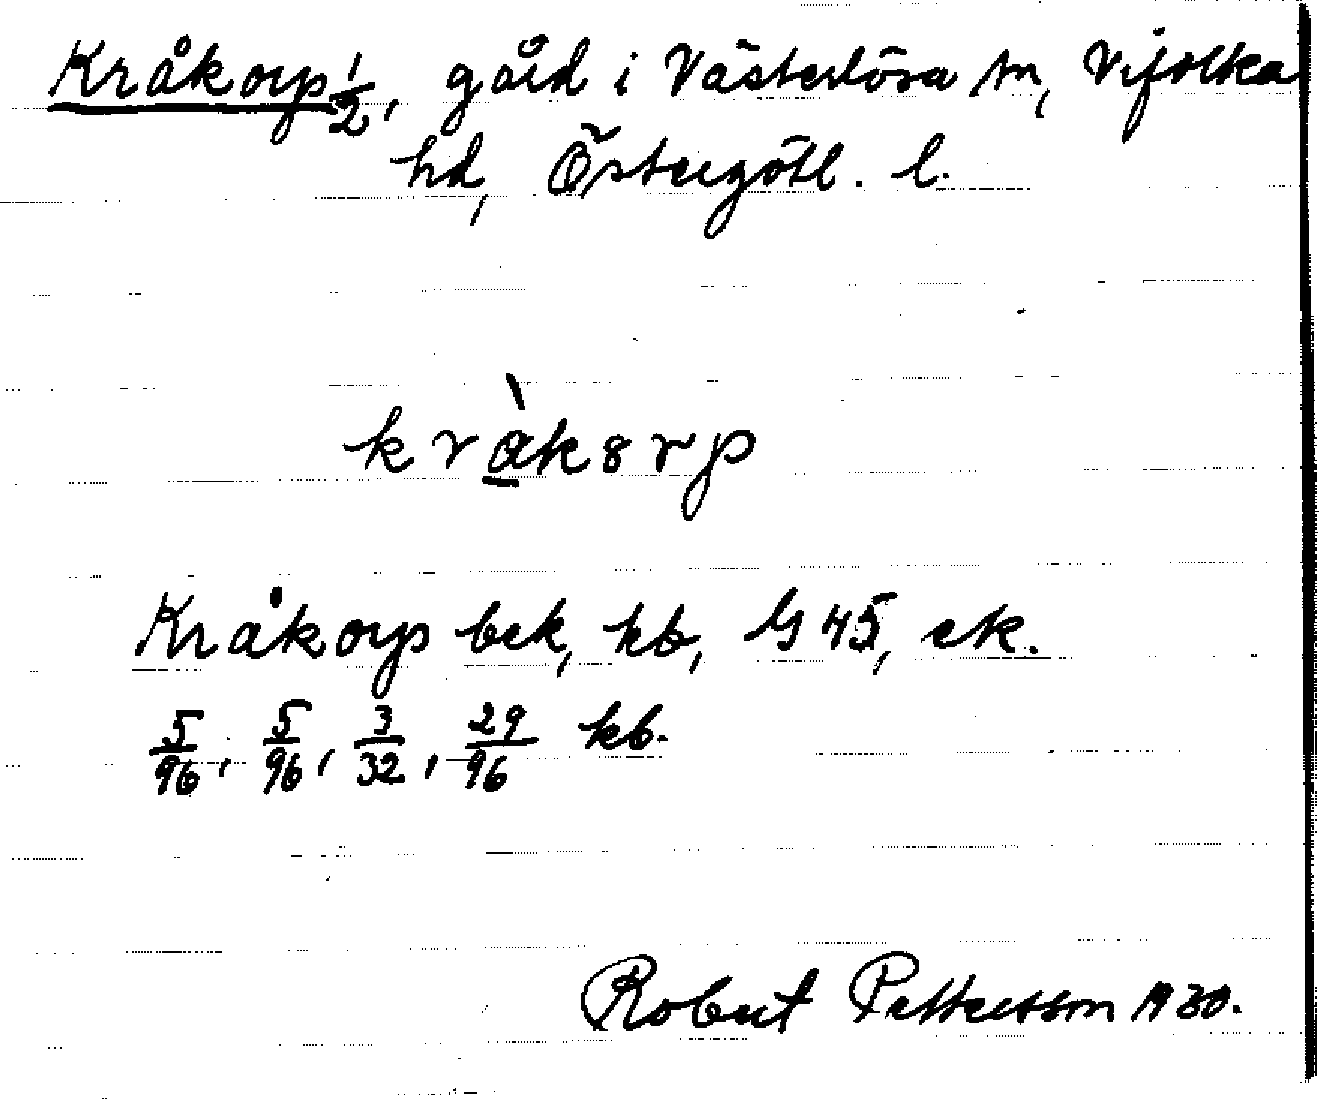 Kråkorp 1/2, gård i Västerlösa sn, Vifolka
hd, Östergötl. l.
kràkorp
Kråkorp bek, kb, G 45, ek.
5/96, 5/96, 3/32, 29/96 kb.
Robert Pettersson 1930.